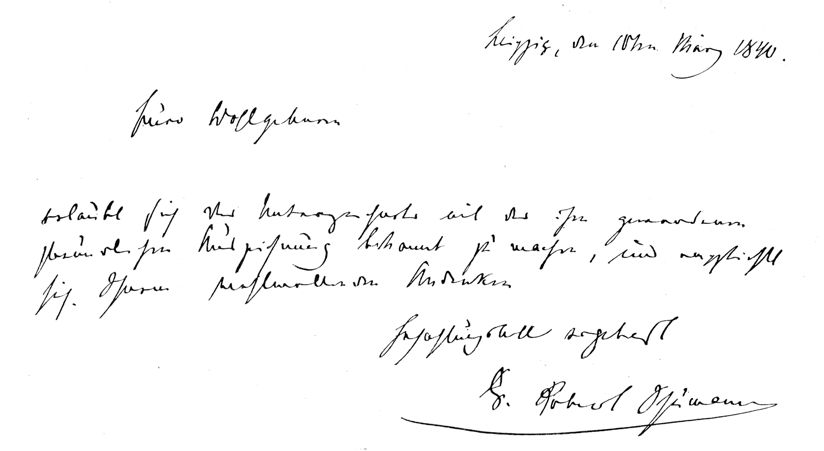 Leipzig, den 10ten März 1840.
Euer Wohlgeboren
erlaubt sich der Unterzeichnete mit der ihm gewordenen
freundlichen Auszeichnung bekannt zu machen, und empfiehlt
sich Ihrem wohlwollenden Andenken
hochachtungsvoll ergebenst
D. Robert Schumann